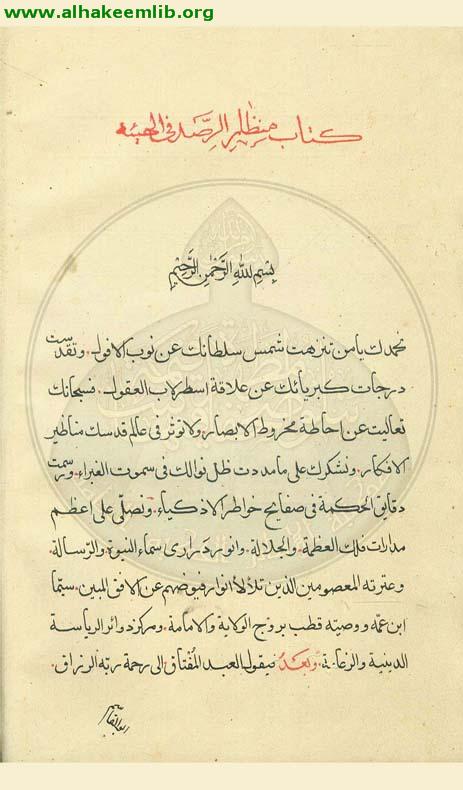 www.alhakeemlib.org
كتاب منظار الرصد في الهيئة
بسم الله الرحمن الرحيم
نحمدك يا من تنزهت شمس سلطانك عن نوب الافول وتقدست
درجات كبريائك عن علاقة اسطرلاب العقول فسبحانك
تعاليت عن احاطة مخروط الابصار ولا توثر في عالم قدسك مناظير
الافكار ونشكرك على ما مددت ظل نوالك في سموت الغبراء ورسمت
دقايق الحكمة في صفايح خواطر الاذكياء ونصلي على اعظم
مدارات فلك العظمة والجلالة وانور دراري سماء النبوة والرسالة
وعترته المعصومين الذين تلألأ انوار فيوضهم عن الافق المبين سيما
ابن عمه ووصيه قطب بروج الولاية والامامة ومركز دوائر الرياسة
الدينية والزعامة وبعد فيقول العبد المفتاق الى رحمة ربه الرزاق